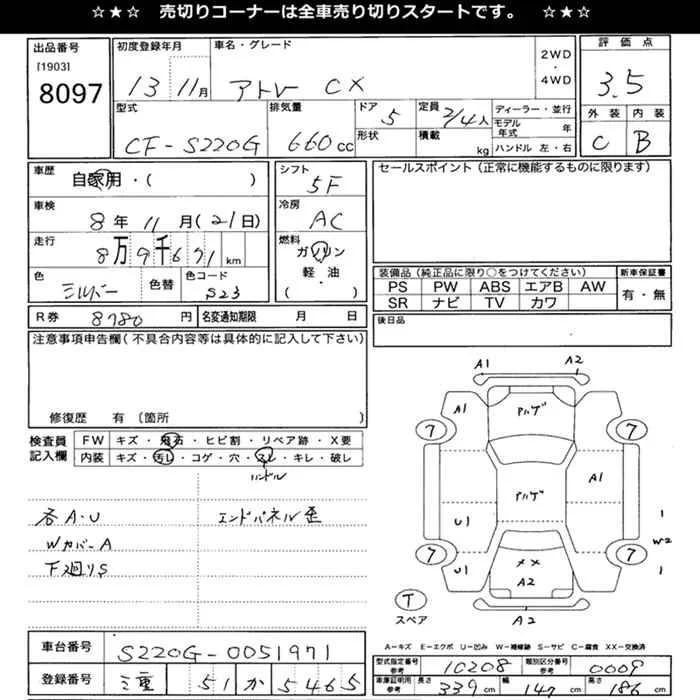 ☆★☆ 売切りコーナーは全車売り切りスタートです。 ☆★☆
出品番号 [1903] 8097
初度登録年月 13 11月
車名・グレード アトレー CX
2WD・4WD
評価点 3.5
外装 C 内装 B
型式 CF-S220G
排気量 660cc
ドア 5
形状
定員 2/4人
積載 kg
ディーラー・並行
モデル年式 年
ハンドル 左・右
車歴 自家用・( )
シフト 5F
車検 8年11月(21日)
冷房 AC
走行 8万9千671km
燃料 ガソリン 軽・油 ( )
色 シルバー 色替 色コード S23
セールスポイント(正常に機能するものに限ります)
装備品(純正品に限り○をつけてください)
新車保証書
PS PW ABS エアB AW
SR ナビ TV カワ
有・無
R券 8780円 名変通知期限 月 日
後日品
注意事項申告欄(不具合内容等は具体的に記入して下さい)
修復歴 有(箇所 )
検査員記入欄
FW キズ・飛石・ヒビ割・リペア跡・X要
内装 キズ・汚レ・コゲ・穴・スレ・キレ・破レ
ハンドル
各A・U エンドパネル歪
WカバーA
下廻りS
A1 A2
A1 アルゲ
7 7
アルゲ A1
U1
7 7
U1 XX A2
1 W2 1
T スペア
A2
A-キズ E-エクボ U-凹み W-補修跡 S-サビ C-腐食 XX-交換済
車台番号 S220G-0051971
型式指定番号 参考 10208 類別区分番号 参考 0009
登録番号 三重 51 か 5465
車庫証明用 参考 長さ 339cm 幅 147cm 高さ 186cm